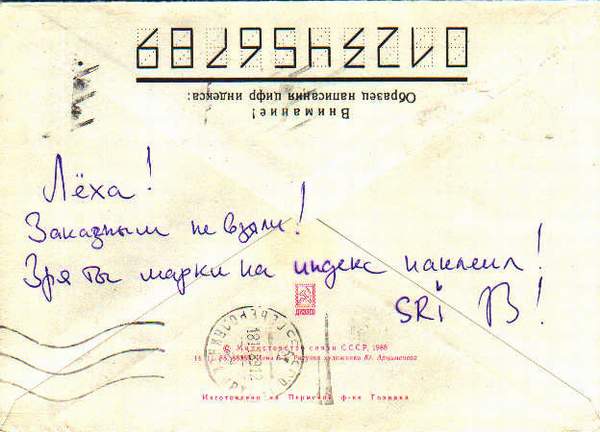 0123456789
Внимание!
Образец написания цифр индекса:
Лёха!
Заказным не взяли!
Зря ты марки на индекс наклеил!
SRI В!
© Министерство связи СССР, 1988
Изготовлено на Пермской ф-ке Гознака